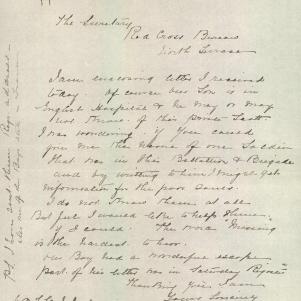 The Secretary
Red Cross Bureau
North Terrace
I am enclosing letter I received
today. of course our Son is in
English Hospital & he may or may
not know of this Private Scott
I was wondering if you could
give me the name of one Soldier
that was in this Battalion & Brigade
and by writing to them I might get
information for the poor souls.
I do not know them at all
But feel I would like to help them
if I could. The word "Missing"
is the hardest to bear.
our Boy had a wonderful escape
part of his letter was in Saturday Register
Thanking you I am
Yours Sincerely
P.S. I can send them Boys address